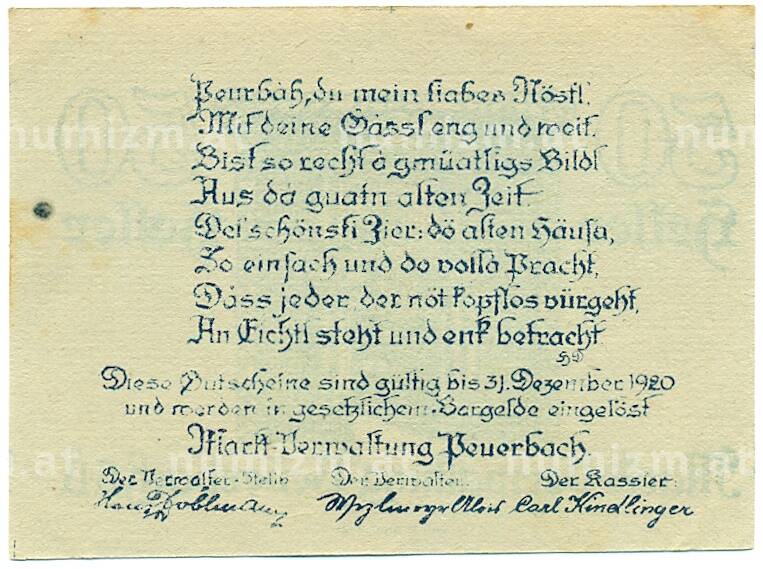 Peurbáh, du mein liabes Nöstl.
Mit deine Gässl eng und weit.
Bist so recht á gmüatligs Bildl
Aus dá guatn alten Zeit.
Dei schönsti Zier: dö alten Häusa,
So einfach und do vollá Pracht,
Dáss jeder, der nöt kopflos vürgeht,
An Eichtl steht und enk betracht.
HD
Diese Gutscheine sind gültig bis 31. Dezember 1920
und werden in gesetzlichem Bargelde eingelöst
Markt-Verwaltung Peuerbach.
Der Verwalter-Stellv. Der Verwalter: Der Kassier:
Carl Kindlinger
numizm.at